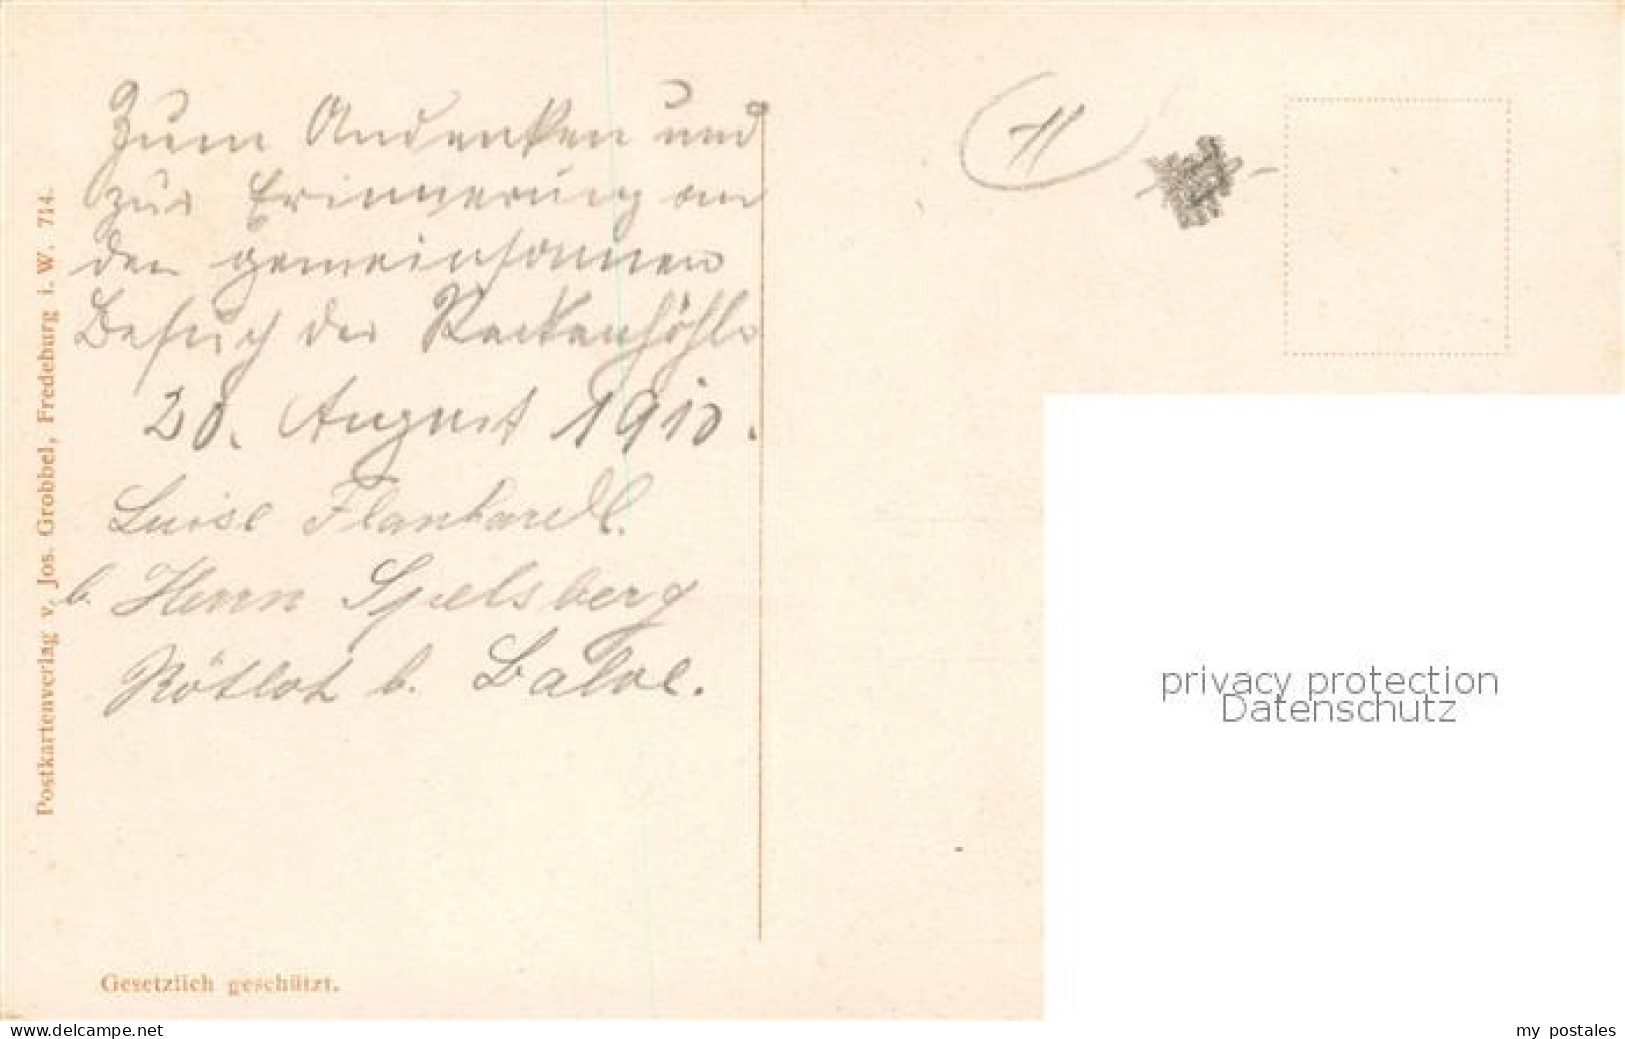 Zum Andenken und
zur Erinnerung an
den gemeinsamen
Besuch der Reckenhöhle
28. August 1910.
Luise
b. Herrn Spelsberg
Rötloh b. Balve.
Postkartenverlag v. Jos. Grobbel, Fredeburg i. W. 714.
Gesetzlich geschützt.
11
privacy protection
Datenschutz
www.delcampe.net
my_postales